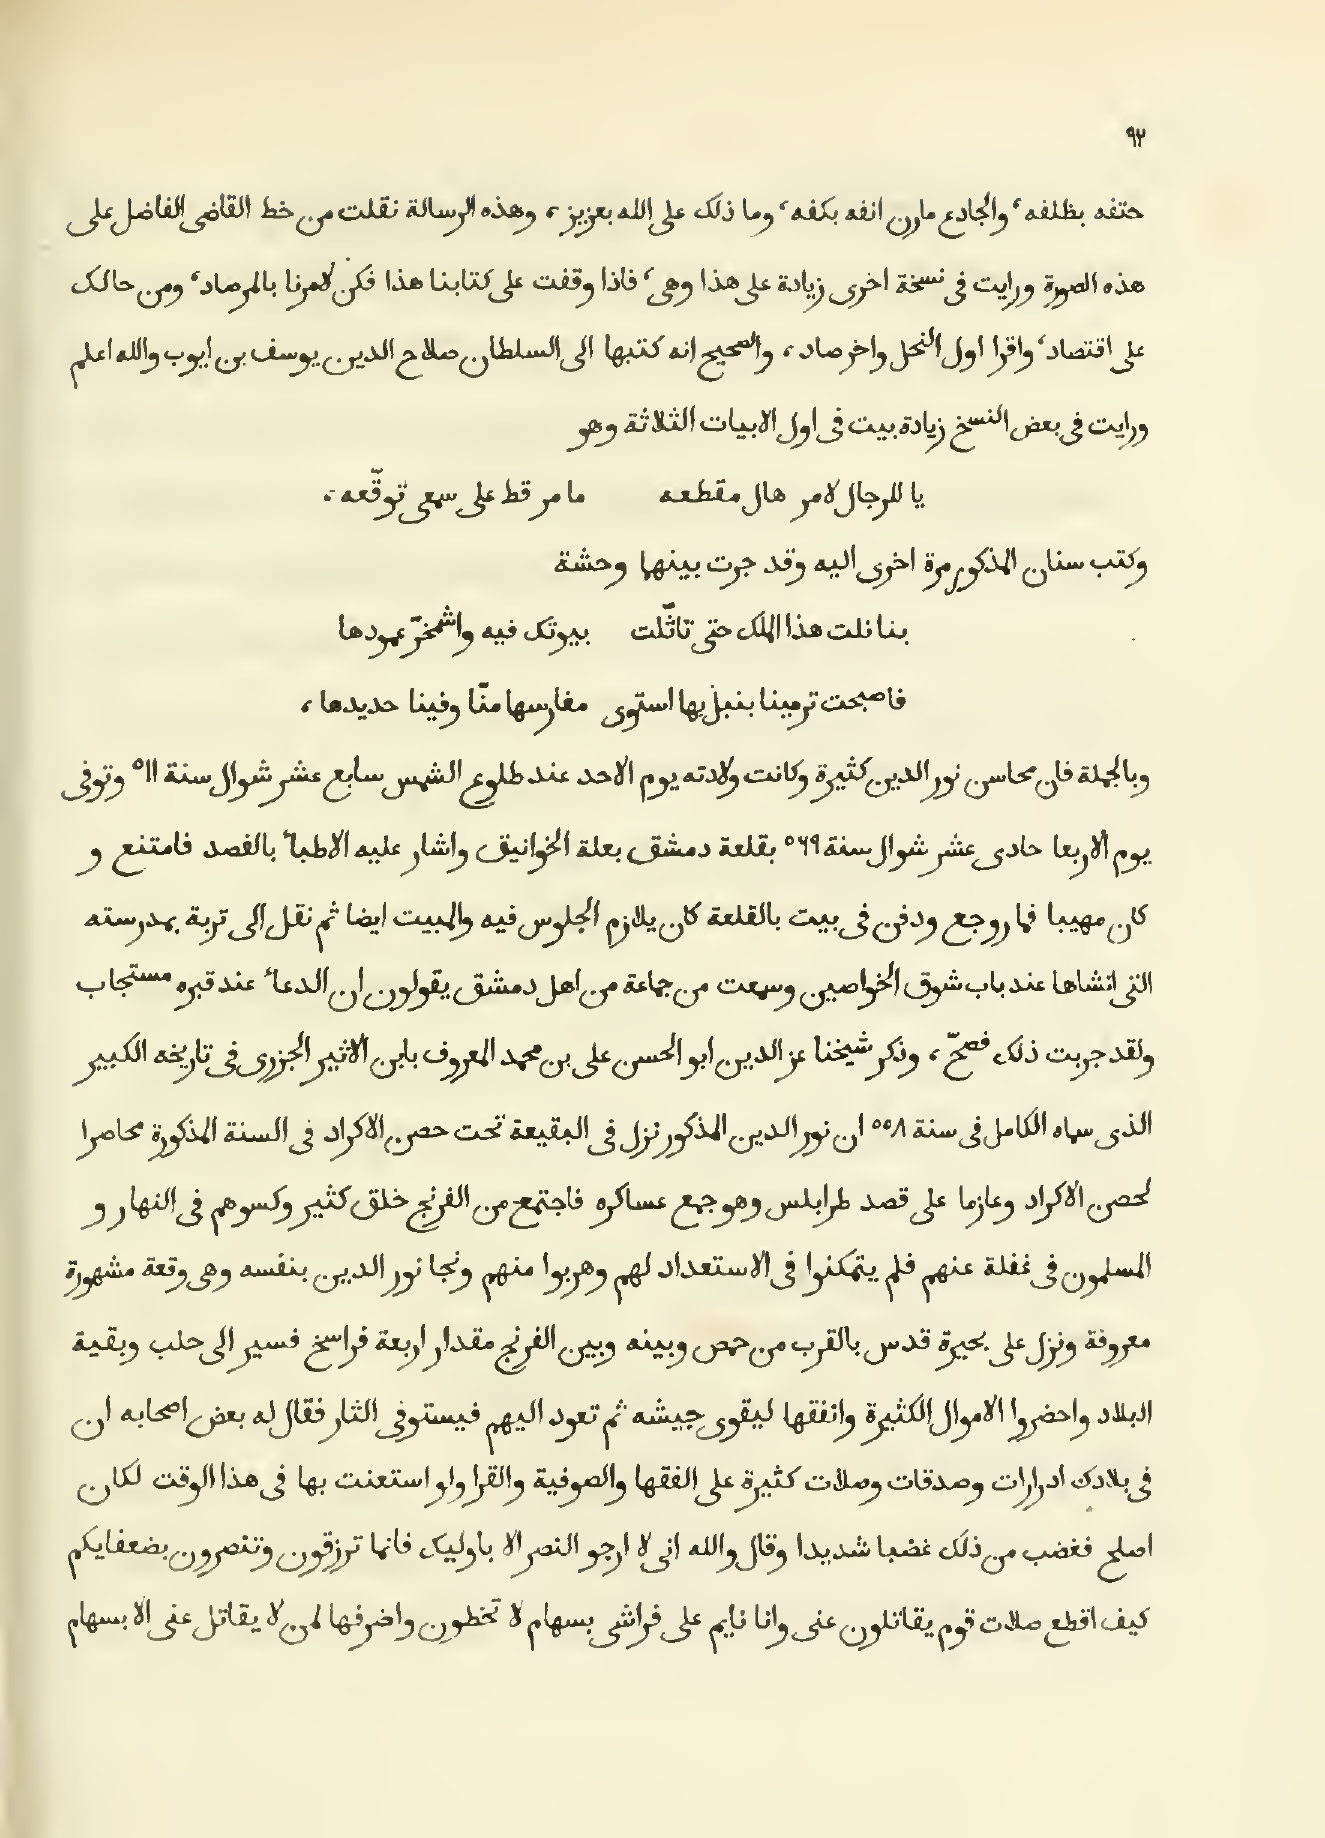 ٩٢
حتفه بظلفه، والجادع مارن انفه بكفه، وما ذلك على الله بعزيز، وهذه الرسالة نقلت من خط القاضى الفاضل على
هذه الصورة ورايت فى نسخة اخرى زيادة على هذا وهى، فاذا وقفت على كتابنا هذا فكن لامرنا بالمرصاد، ومن حالك
على اقتصاد، واقرا اول النحل واخر صاد، والصحيح انه كتبها الى السلطان صلاح الدين يوسف بن ايوب والله اعلم
ورايت فى بعض النسخ زيادة بيت فى اول الابيات الثلاثة وهو
يا للرجال لامر هال مقطعه ما مر قط على سمعى توقّعه،
وكتب سنان المذكور مرة اخرى اليه وقد جرت بينهما وحشة
بنا نلت هذا الملك حتى تاثّلت بيوتك فيه واشمخرّ عمودها
فاصبحت ترمينا بنبل بها استوى مغارسها منّا وفينا حديدها،
وبالجملة فان محاسن نور الدين كثيرة وكانت ولادته يوم الاحد عند طلوع الشمس سابع عشر شوال سنة ٥١١ وتوفى
يوم الاربعا حادى عشر شوال سنة ٥٦٩ بقلعة دمشق بعلة الخوانيق واشار عليه الاطباء بالفصد فامتنع و
كان مهيبا فما روجع ودفن فى بيت بالقلعة كان يلازم الجلوس فيه والمبيت ايضا ثم نقل الى تربة بمدرسته
التى انشاها عند باب شوق الخواصين وسمعت من جماعة من اهل دمشق يقولون ان الدعاء عند قبره مستجاب
ولقد جربت ذلك فصحّ، وذكر شيخنا عز الدين ابو الحسن على بن محمد المعروف بابن الاثير الجزرى فى تاريخه الكبير
الذى سماه الكامل فى سنة ٥٥٨ ان نور الدين المذكور نزل فى البقيعة تحت حصن الاكراد فى السنة المذكورة محاصرا
لحصن الاكراد وعازما على قصد طرابلس وهو جمع عساكره فاجتمع من الفرنج خلق كثير وكسوهم فى النهار و
المسلمون فى غفلة عنهم فلم يتمكنوا فى الاستعداد لهم وهربوا منهم ونجا نور الدين بنفسه وهى وقعة مشهورة
معروفة ونزل على بحيرة قدس بالقرب من حمص وبينه وبين الفرنج مقدار اربعة فراسخ فسير الى حلب وبقية
البلاد واحضروا الاموال الكثيرة وانفقها ليقوى جيشه ثم تعود اليهم فيستوفى الثار فقال له بعض اصحابه ان
فى بلادك ادرارات وصدقات وصلات كثيرة على الفقها والصوفية والقرا ولو استعنت بها فى هذا الوقت لكان
اصلح فغضب من ذلك غضبا شديدا وقال والله انى لا ارجو النصر الا باوليك فانما ترزقون وتنصرون بضعفايكم
كيف اقطع صلات قوم يقاتلون عنى وانا نايم على فراشى بسهام لا تخطون واضرفها لمن لا يقاتل عنى الا بسهام